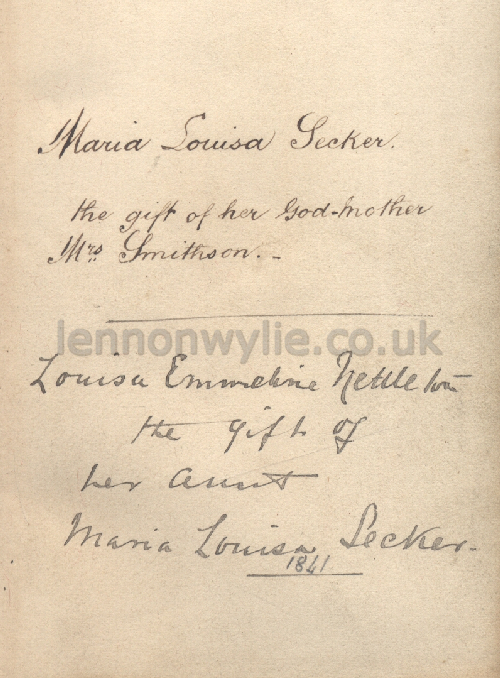 Maria Louisa Secker.
the gift of her God-Mother
Mrs. Smithson. -
lennonwylie.co.uk
Louisa Emmeline Nettleton
the gift of
her aunt
Maria Louisa Secker.
1841